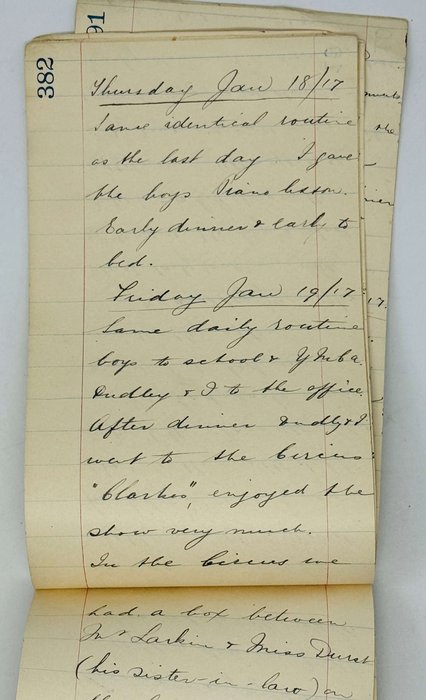 382
91
Thursday Jan 18/17
Same identical routine
as the last day. I gave
the boys Piano lesson.
Early dinner & early to
bed.
Friday Jan 19/17
Same daily routine
boys to school & YMCA.
Dudley & I to the office.
After dinner Dudly & I
went to the Circus
"Clarkes", enjoyed the
show very much.
In the Circus we
had a box between
Mr Larkin & Miss Durst
(his sister-in-law) on
the
17.